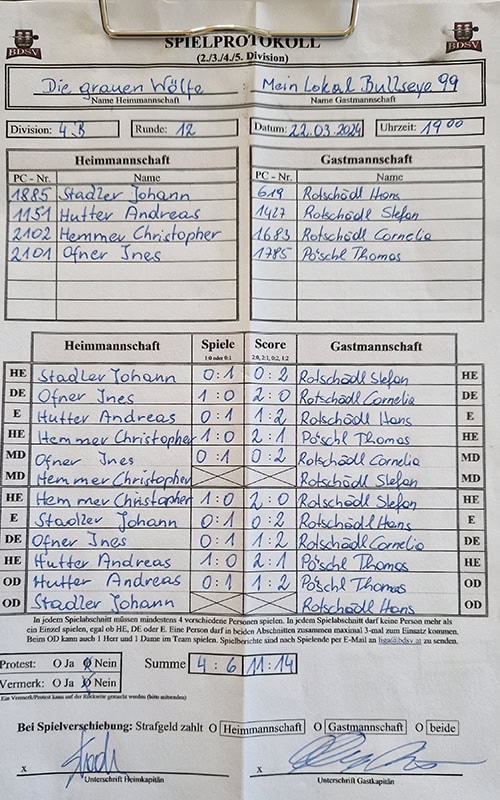 BDSV
SPIELPROTOKOLL
BDSV
(2./3./4./5. Division)
Die grauen Wölfe : Mein Lokal Bullseye 99
Name Heimmannschaft Name Gastmannschaft
Division: 4.B Runde: 12 Datum: 22.03.2024 Uhrzeit: 19 00
Heimmannschaft Gastmannschaft
PC - Nr. Name PC - Nr. Name
1885 Stadler Johann 619 Rotschädl Hans
1151 Hutter Andreas 1427 Rotschädl Stefan
2102 Hemmer Christopher 1683 Rotschädl Cornelia
2101 Ofner Ines 1785 Pöschl Thomas
Heimmannschaft Spiele Score Gastmannschaft
1:0 oder 0:1 2:0, 2:1, 0:2, 1:2
HE Stadler Johann 0:1 0:2 Rotschädl Stefan HE
DE Ofner Ines 1:0 2:0 Rotschädl Cornelia DE
E Hutter Andreas 0:1 1:2 Rotschädl Hans E
HE Hemmer Christopher 1:0 2:1 Pöschl Thomas HE
MD Ofner Ines 0:1 0:2 Rotschädl Cornelia MD
MD Hemmer Christopher Rotschädl Stefan MD
HE Hemmer Christopher 1:0 2:0 Rotschädl Stefan HE
E Stadler Johann 0:1 0:2 Rotschädl Hans E
DE Ofner Ines 0:1 1:2 Rotschädl Cornelia DE
HE Hutter Andreas 1:0 2:1 Pöschl Thomas HE
OD Hutter Andreas 0:1 1:2 Pöschl Thomas OD
OD Stadler Johann Rotschädl Hans OD
In jedem Spielabschnitt müssen mindestens 4 verschiedene Personen spielen. In jedem Spielabschnitt darf keine Person mehr als
ein Einzel spielen, egal ob HE, DE oder E. Eine Person darf in beiden Abschnitten zusammen maximal 3-mal zum Einsatz kommen.
Beim OD kann auch 1 Herr und 1 Dame im Team spielen. Spielberichte sind nach Spielende per E-Mail an liga@bdsv.at zu senden.
Protest: O Ja O Nein Summe 4 : 6 11:14
Vermerk: O Ja O Nein
Ein Vermerk/Protest kann auf der Rückseite gemacht werden (bitte ankreuzen)
Bei Spielverschiebung: Strafgeld zahlt O Heimmannschaft O Gastmannschaft O beide
x x
Unterschrift Heimkapitän Unterschrift Gastkapitän